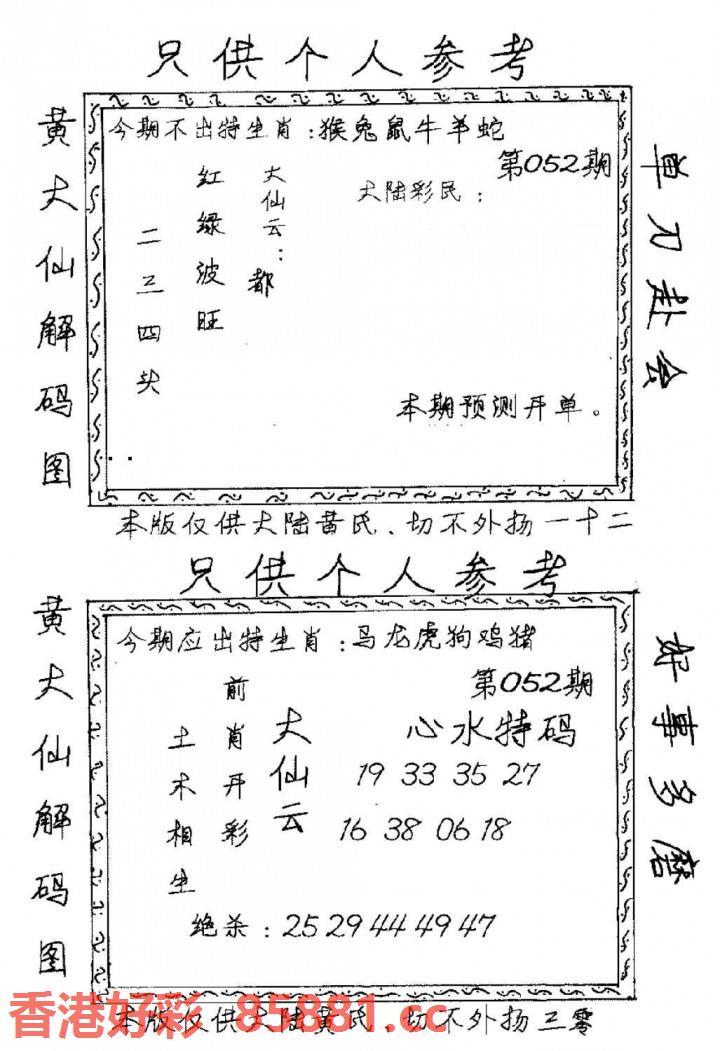 只供个人参考
黄大仙解码图
今期不出特生肖:猴兔鼠牛羊蛇
第052期
大陆彩民:
大仙云:
都
红绿波旺
二三四头
本期预测开单。
单刀赴会
本版仅供大陆黄氏、切不外扬一十二
只供个人参考
黄大仙解码图
今期应出特生肖:马龙虎狗鸡猪
第052期
心水特码
大仙云
前肖开彩
土木相生
19 33 35 27
16 38 06 18
绝杀:25 29 44 49 47
好事多磨
本版仅供大陆黄氏、切不外扬三零
香港好彩 85881.cc